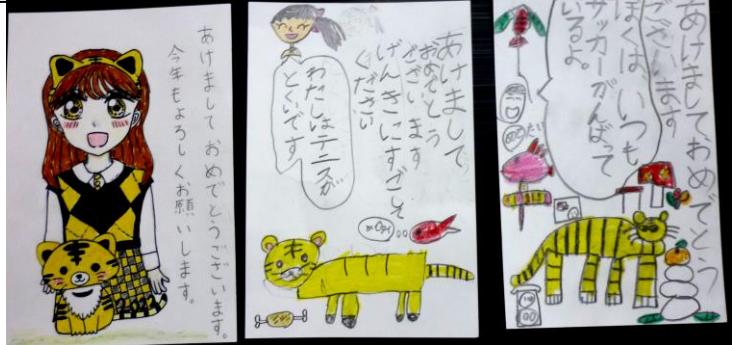 あけまして おめでとうございます。
今年もよろしくお願いします。
あけまして
おめでとう
ございます
げんきにすごして
ください
わたしはテニスが
とくいです
あけましておめでとう
ございます
ぼくは、いつも
サッカーがんばって
いるよ。